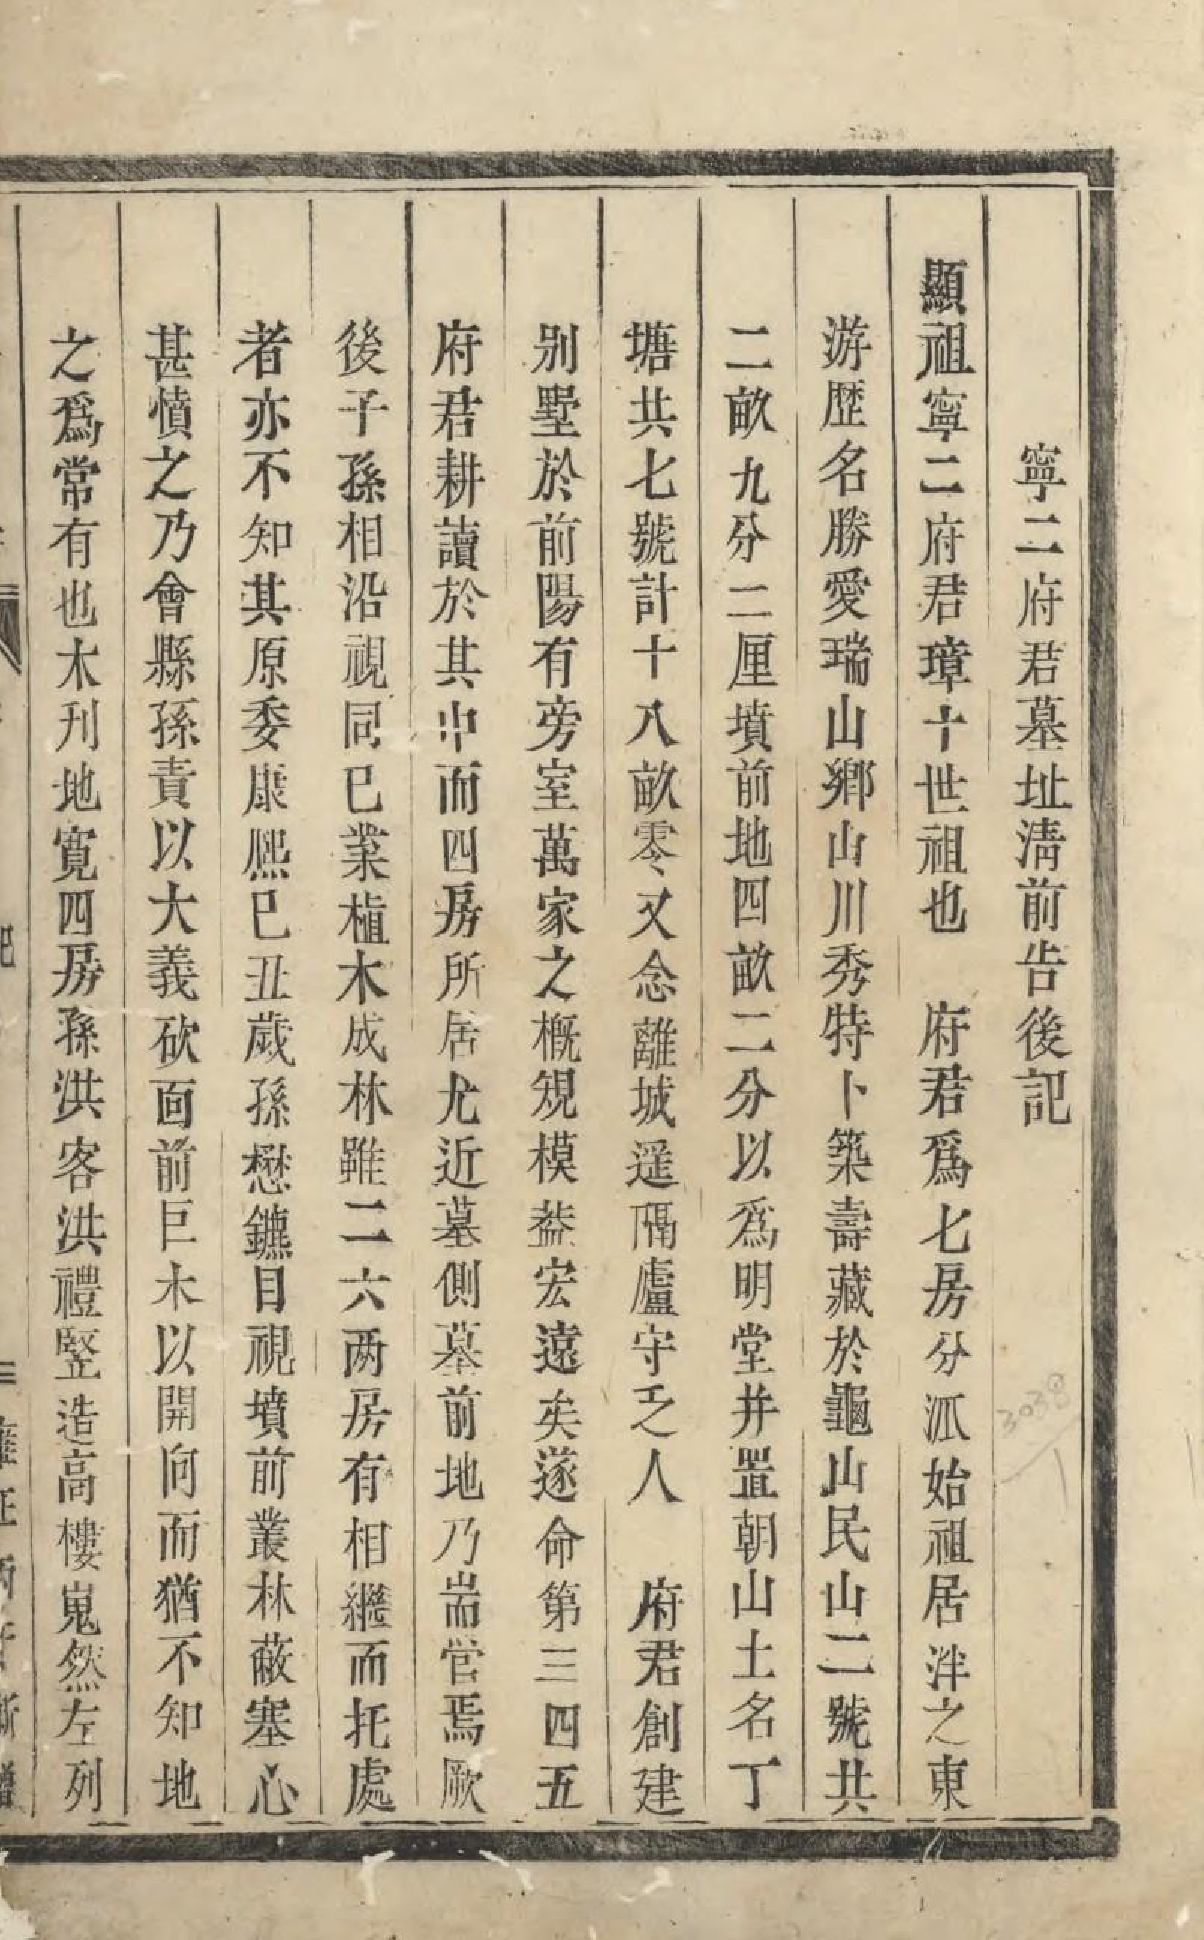 寧二府君墓址淸前告後記
顯祖寧二府君璋十世祖也　府君爲七房分派始祖居泮之東
游歴名勝愛瑞山鄉山川秀特卜築壽藏於龜山民山二號共
二畝九分二厘墳前地四畝二分以爲明堂并置朝山土名丁
塘共七號計十八畝零又念離城遥隔廬守乏人　府君創建
别墅於前陽有旁室萬家之概規模益宏遠矣遂命第三四五
府君耕讀於其中而四房所居尤近墓側墓前地乃耑管焉厥
後子孫相沿視同已業植木成林雖二六两房有相繼而托處
者亦不知其原委康熙已丑歲孫懋鑣目視墳前叢林蔽塞心
甚憤之乃會縣孫責以大義砍面前巨木以開向而猶不知地
之爲常有也木刋地寛四房孫洪客洪禮竪造高樓嵬然左列